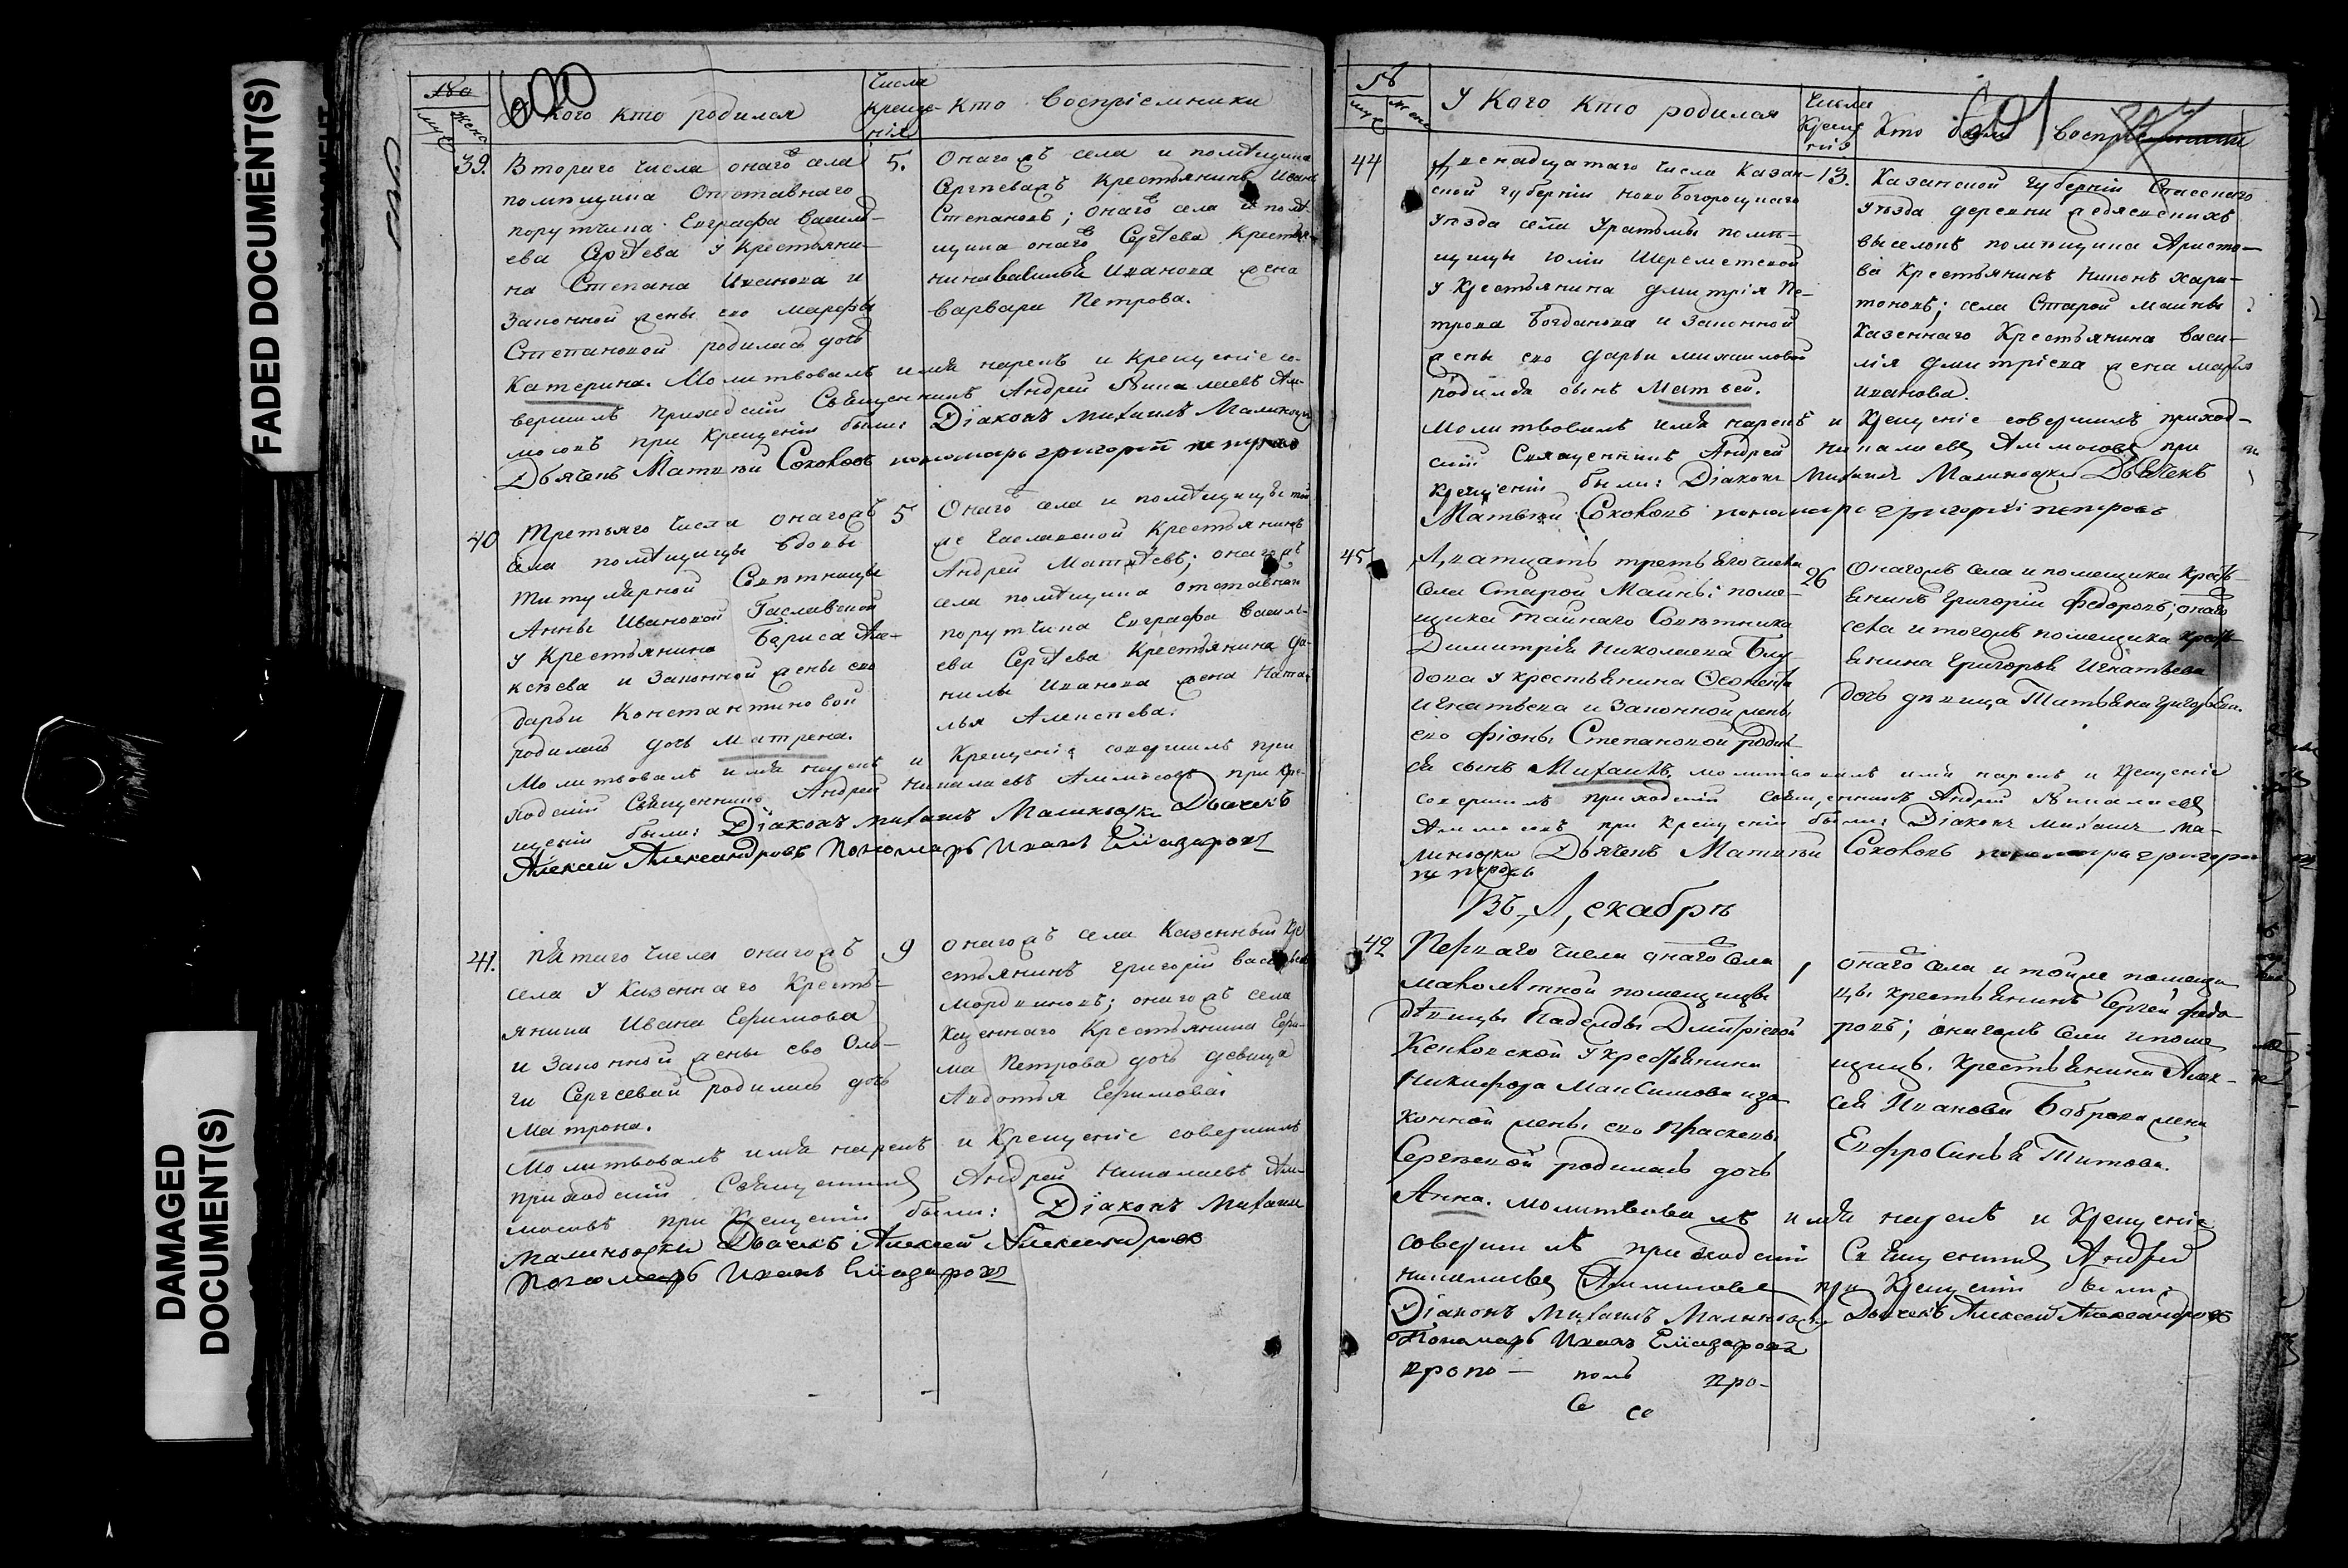 FADED DOCUMENT(S)
DAMAGED
DOCUMENT(S)
600
У кого кто родился
Числа
Креще-
нія
Кто Воспріемники
муж
жено
39.
Втораго числа онагѡ села
помѣщика Отставнаго
порутчика Евграфа Василь-
ева Сергѣева у Крестьяни-
на Степана Иванова и
Законной жены его Марѳы
Степановой родилась дочь
Катерина. Молитвовалъ имя нарекъ и Крещеніе со-
вершилъ приходскій Священникъ Андрей Николаевъ Ам-
мосовъ при Крещеніи были: Діаконъ Михаилъ Малиновскій
Дьячекъ Матвѣй Соковъ пономарь григорій петровъ
5.
Онагожъ села и помѣщика
Сергѣева Крестьянинъ Иванъ
Степановъ; онаго села и помѣ-
щика онаго Сергѣева Крестья-
нина Василья Иванова жена
варвара Петрова.
40
Третьяго числа онагожъ
села помѣщицы вдовы
Титулярной Совѣтницы
Анны Ивановой Гаславской
у Крестьянина Бориса Але-
ксѣева и Законной жены его
дарьи Константиновой
родилась дочь Матрена.
Молитвовалъ имя нарекъ и Крещеніе совершилъ при-
ходскій Священникъ Андрей Николаевъ Аммосовъ при Кре-
щеніи были: Діаконъ Михаилъ Малиновскій Дьячекъ
Алексѣй Александровъ Пономарь Иванъ Елиазаровъ
5
Онаго села и помѣщицы той
же Гаславской Крестьянинъ
Андрей Матвѣевъ; онагожъ
села помѣщика отставнаго
порутчика Евграфа Василь-
ева Сергѣева Крестьянина Да-
нилы Иванова жена Ната-
лья Алексѣева.
41.
пятаго числа онагожъ
села У Казеннаго Кресть-
янина Ивана Ефимова
и Законной жены ево Оль-
ги Сергеевай родилась дочь
Матрона.
Молитвовалъ имя нарекъ и Крещеніе совершилъ
приходскій Священникъ Андрей Николаевъ Ам-
мосовъ при Крещеніи были: Діаконъ Михаилъ
Малиновскій Дьячекъ Алексѣй Александровъ
Пономарь Иванъ Елиазаровъ
9
онагожъ села Казенный Кре-
стьянинъ григорій васильевъ
мордвиновъ; онагожъ села
Казеннаго Крестьянина Ефи-
ма Петрова дочь девица
Авдотья Ефимова
601
У Кого Кто родился
Числа
Креще
нія
Кто были Воспріемники
муж
жено
44
Двенадцатаго числа Казан-
ской губерніи новобогороцкаго
Уѣзда села Уратьмы помѣ-
щицы юліи Шереметевой
у Крестьянина дмитрія Пе-
трова Богданова и Законной
жены его дарьи михаиловой
родился сынъ Матвей.
молитвовалъ имя нарекъ и Крещеніе совершилъ приход-
скій Священникъ Андрей Николаевъ Аммосовъ при
Крещеніи были: Діаконъ Михаилъ Малиновскій Дьячекъ
Матвѣй Соковъ пономарь григорій петровъ
13.
Казанской губерніи Спасскаго
Уѣзда деревни
выселокъ помѣщика Аристо-
ва Крестьянинъ Никонъ Хари-
тоновъ; села Старой Майны
Казеннаго Крестьянина Васи-
лія дмитріева жена марья
иванова.
45
Дватцать третьяго числа
села Старой Майны поме-
щика Тайнаго Совѣтника
Димитрія Николаева Блу-
дова у крестьянина
Игнатьева и Законной жены
его Фіоны Степановой родил-
ся сынъ Михаилъ. молитвовалъ имя нарекъ и Крещеніе
совершилъ приходскій Священникъ Андрей Николаевъ
Аммосовъ при Крещеніи были: Діаконъ Михаилъ Ма-
линовскій Дьячекъ Матвѣй Соковъ пономарь григорій
петровъ
26
Онагожъ села и помещика Крест-
янинъ Григорій Федоровъ; онаго
села и тогожъ помещика крест-
янина Григорья Игнатьева
дочь дѣвица Татьяна григорьева.
Въ Декабрѣ
42
Перваго числа онаго села
малолѣтной помещицы
дѣвицы Надежды Дмитріевой
у крестьянина
Никифора Максимова и за-
конной жены его Прасковьи
Сергѣевой родилась дочь
Анна. молитвовалъ имя нарекъ и Крещеніе
совершилъ приходскій Священникъ Андрей
Николаевъ Аммосовъ при Крещеніи были
Діаконъ Михаилъ Малиновскій Дьячекъ Алексѣй Александровъ
Пономарь Иванъ Елиазаровъ
1
онаго села и тойже помещи
цы крестьянинъ Сергей Федо-
ровъ; онагожъ села и поме
щицы крестьянина Алек-
сѣя Иванова Боброва жена
Евфросинья Титова.